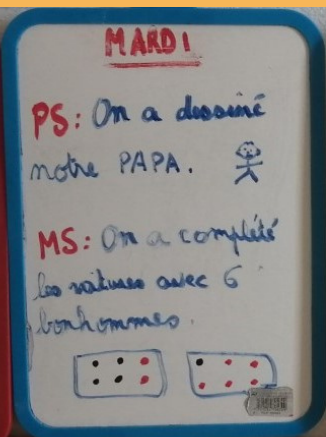 MARDI
PS: On a dessiné
notre PAPA.
MS: On a complété
les voitures avec 6
bonhommes.